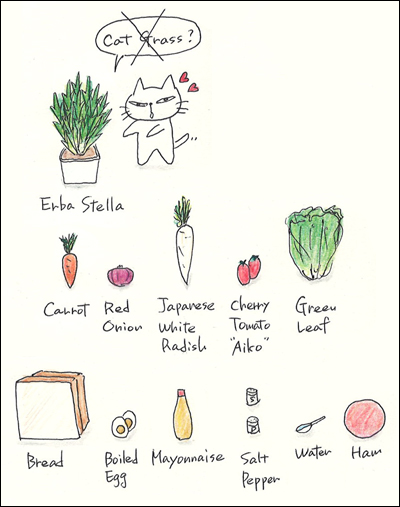 Cat Grass?
Erba Stella
Carrot
Red
Onion
Japanese
White
Radish
Cherry
Tomato
"Aiko"
Green
Leaf
Bread
Boiled
Egg
Mayonnaise
Salt
Pepper
Water
Ham